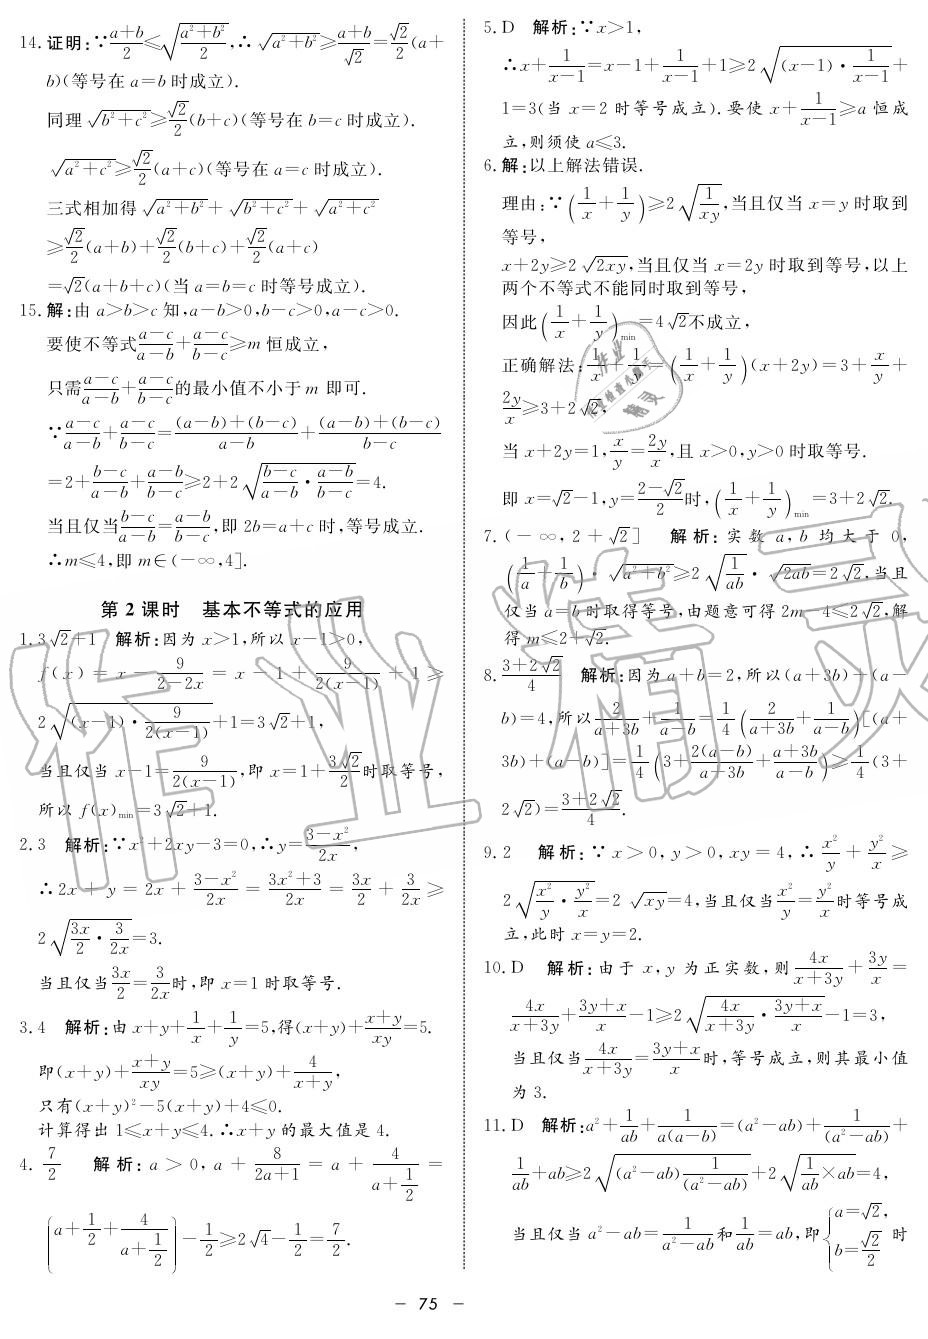 14.证明:∵(a+b)/2≤√((a²+b²)/2),∴√(a²+b²)≥(a+b)/√2=√2/2(a+
b)(等号在a=b时成立).
同理√(b²+c²)≥√2/2(b+c)(等号在b=c时成立).
√(a²+c²)≥√2/2(a+c)(等号在a=c时成立).
三式相加得√(a²+b²)+√(b²+c²)+√(a²+c²)
≥√2/2(a+b)+√2/2(b+c)+√2/2(a+c)
=√2(a+b+c)(当a=b=c时等号成立).
15.解:由a>b>c知,a-b>0,b-c>0,a-c>0.
要使不等式(a-c)/(a-b)+(a-c)/(b-c)≥m恒成立,
只需(a-c)/(a-b)+(a-c)/(b-c)的最小值不小于m即可.
∵(a-c)/(a-b)+(a-c)/(b-c)=((a-b)+(b-c))/(a-b)+((a-b)+(b-c))/(b-c)
=2+(b-c)/(a-b)+(a-b)/(b-c)≥2+2√((b-c)/(a-b)·(a-b)/(b-c))=4.
当且仅当(b-c)/(a-b)=(a-b)/(b-c),即2b=a+c时,等号成立.
∴m≤4,即m∈(-∞,4].
第2课时 基本不等式的应用
1.3√2+1 解析:因为x>1,所以x-1>0,
f(x)=x-9/(2-2x)=x-1+9/(2(x-1))+1≥
2√((x-1)·9/(2(x-1)))+1=3√2+1,
当且仅当x-1=9/(2(x-1)),即x=1+3√2/2时取等号,
所以f(x)min=3√2+1.
2.3 解析:∵x²+2xy-3=0,∴y=(3-x²)/(2x),
∴2x+y=2x+(3-x²)/(2x)=(3x²+3)/(2x)=3x/2+3/(2x)≥
2√(3x/2·3/(2x))=3.
当且仅当3x/2=3/(2x)时,即x=1时取等号.
3.4 解析:由x+y+1/x+1/y=5,得(x+y)+(x+y)/(xy)=5.
即(x+y)+(x+y)/(xy)=5≥(x+y)+4/(x+y),
只有(x+y)²-5(x+y)+4≤0.
计算得出1≤x+y≤4.∴x+y的最大值是4.
4.7/2 解析:a>0,a+8/(2a+1)=a+4/(a+1/2)=
(a+1/2+4/(a+1/2))-1/2≥2√4-1/2=7/2.
5.D 解析:∵x>1,
∴x+1/(x-1)=x-1+1/(x-1)+1≥2√((x-1)·1/(x-1))+
1=3(当x=2时等号成立).要使x+1/(x-1)≥a恒成
立,则须使a≤3.
6.解:以上解法错误.
理由:∵(1/x+1/y)≥2√(1/(xy)),当且仅当x=y时取到
等号,
x+2y≥2√(2xy),当且仅当x=2y时取到等号,以上
两个不等式不能同时取到等号,
因此(1/x+1/y)min=4√2不成立,
正确解法:1/x+1/y=(1/x+1/y)(x+2y)=3+x/y+
2y/x≥3+2√2,
当x+2y=1,x/y=2y/x,且x>0,y>0时取等号.
即x=√2-1,y=(2-√2)/2时,(1/x+1/y)min=3+2√2.
7.(-∞,2+√2] 解析:实数a,b均大于0,
(1/a+1/b)·√(a²+b²)≥2√(1/(ab))·√(2ab)=2√2,当且
仅当a=b时取得等号,由题意可得2m-4≤2√2,解
得m≤2+√2.
8.(3+2√2)/4 解析:因为a+b=2,所以(a+3b)+(a-
b)=4,所以2/(a+3b)+1/(a-b)=1/4(2/(a+3b)+1/(a-b))[(a+
3b)+(a-b)]=1/4(3+2(a-b)/(a+3b)+(a+3b)/(a-b))≥1/4(3+
2√2)=(3+2√2)/4.
9.2 解析:∵x>0,y>0,xy=4,∴x²/y+y²/x≥
2√(x²/y·y²/x)=2√(xy)=4,当且仅当x²/y=y²/x时等号成
立,此时x=y=2.
10.D 解析:由于x,y为正实数,则4x/(x+3y)+3y/x=
4x/(x+3y)+(3y+x)/x-1≥2√(4x/(x+3y)·(3y+x)/x)-1=3,
当且仅当4x/(x+3y)=(3y+x)/x时,等号成立,则其最小值
为3.
11.D 解析:a²+1/(ab)+1/(a(a-b))=(a²-ab)+1/(a²-ab)+
1/(ab)+ab≥2√((a²-ab)1/(a²-ab))+2√(1/(ab)×ab)=4,
当且仅当a²-ab=1/(a²-ab)和1/(ab)=ab,即{a=√2,b=√2/2时
- 75 -
作业精灵